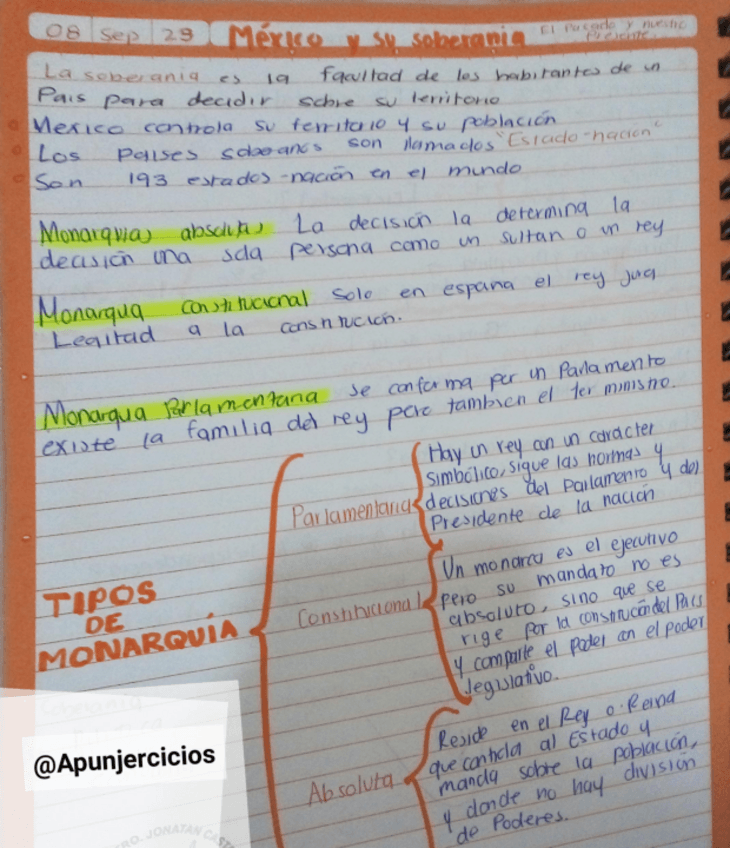 08 Sep 23 México y su soberanía El Pasado y nuestro Presente
La soberania es la facultad de los habitantes de un
País para decidir sobre su territorio
Mexico controla su territorio y su población
Los Paises soberanos son llamados "Estado-nación"
Son 193 estados-nación en el mundo
Monarquias absolutas La decisión la determina la
decisión una sola persona como un sultan o un rey
Monarqua constitucional Solo en españa el rey jura
Lealtad a la constitución.
Monarqua Parlamentaria se conforma por un Parlamento
existe la familia del rey pero tambien el 1er ministro.
TIPOS
DE
MONARQUÍA
Parlamentaria
Hay un rey con un caracter
simbólico, sigue las normas y
decisiones del Parlamento y del
Presidente de la nación
Constitucional
Un monarca es el ejecutivo
pero su mandato no es
absoluto, sino que se
rige por la constitución del País
y comparte el poder con el poder
legislativo.
Absoluta
Reside en el Rey o Reina
que controla al Estado y
manda sobre la población,
y donde no hay división
de Poderes.
@Apunjercicios
JONATAN